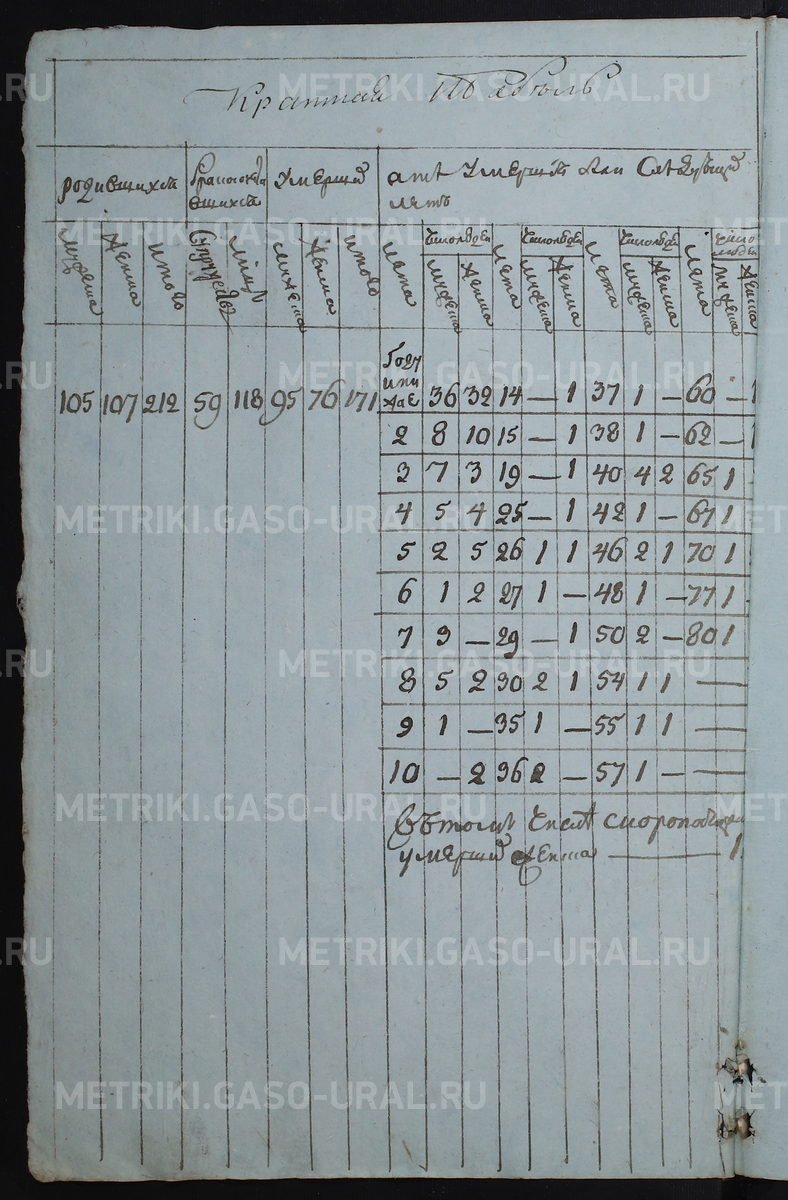 Краткая Табель
родившихся умерших
летъ
мужеска женска итого мужеска женска итого лета мужеска женска лета мужеска женска лета мужеска женска лета мужеска женска
Году и ниже
105 107 212 59 118 95 76 171 36 32 14 — 1 37 1 — 60 — 1
2 8 10 15 — 1 38 1 — 62 — 1
3 7 3 19 — 1 40 4 2 65 1
4 5 4 25 — 1 42 1 — 67 1
5 2 5 26 1 1 46 2 1 70 1
6 1 2 27 1 — 48 1 — 77 1
7 3 — 29 — 1 50 2 — 80 1
8 5 2 30 2 1 54 1 1 —
9 1 — 35 1 — 55 1 1 —
10 — 2 36 2 — 57 1 — —
Въ томъ числѣ
умерших женска — 1
METRIKI.GASO-URAL.RU